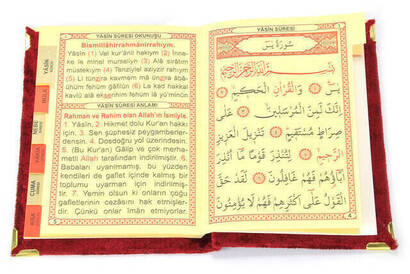 YÂSÎN SÛRESİ OKUNUŞU
Bismillâhirrahmânirrahıym.
Yâsîn (1) Vel kur'ânil hakıym (2) İnne-
ke le minel murseliyn (3) Alâ sırâtım
müstekıym (4) Tenziylel aziyzir rahıym
(5) Li tünzira kavmem mâ ünzira âbâ-
ühüm fehüm ğâfilûn (6) Le kad hakkal
kavlü alâ ekserihim fehüm lâ yü'minûn
YÂSÎN SÛRESİ ANLAMI
Rahman ve Rahim olan Allah'ın İsmiyle.
1. Yâsîn, 2. Hikmet dolu Kur'an hakkı
için, 3. Sen şüphesiz peygamberler-
densin. 4. Dosdoğru yol üzerindesin.
5. (Bu Kur'an) Gâlip ve çok merha-
metli Allah tarafından indirilmiştir. 6.
Babaları uyarılmamış, bu yüzden
kendileri de gaflet içinde kalmış bir
toplumu uyarman için indirilmiş-
tir. 7. Yemin olsun ki onların çoğu
gafletlerinin cezâsını hak etmişler-
dir. Çünkü onlar îman etmiyorlar.
YÂSÎN
CUMA
YÂSÎN SÛRESİ
سُورَةُ يٰسۤ
بِسْمِ اللّٰهِ الرَّحْمٰنِ الرَّحِيمِ
يٰسۤ وَالْقُرْاٰنِ الْحَكِيمِ
اِنَّكَ لَمِنَ الْمُرْسَلِينَ عَلٰى
صِرَاطٍ مُسْتَقِيمٍ تَنْزِيلَ الْعَزِيزِ
الرَّحِيمِ لِتُنْذِرَ قَوْمًا مَٓا اُنْذِرَ
اٰبَٓاؤُهُمْ فَهُمْ غَافِلُونَ لَقَدْ حَقَّ
الْقَوْلُ عَلٰٓى اَكْثَرِهِمْ فَهُمْ لَا يُؤْمِنُونَ
4